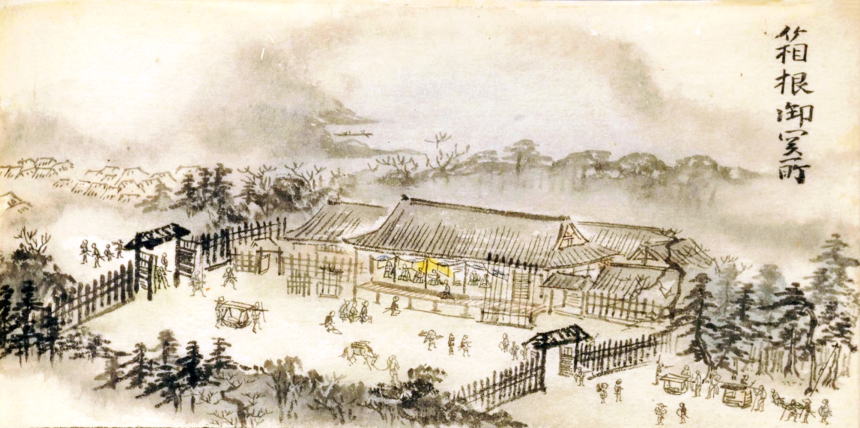 箱根御関所